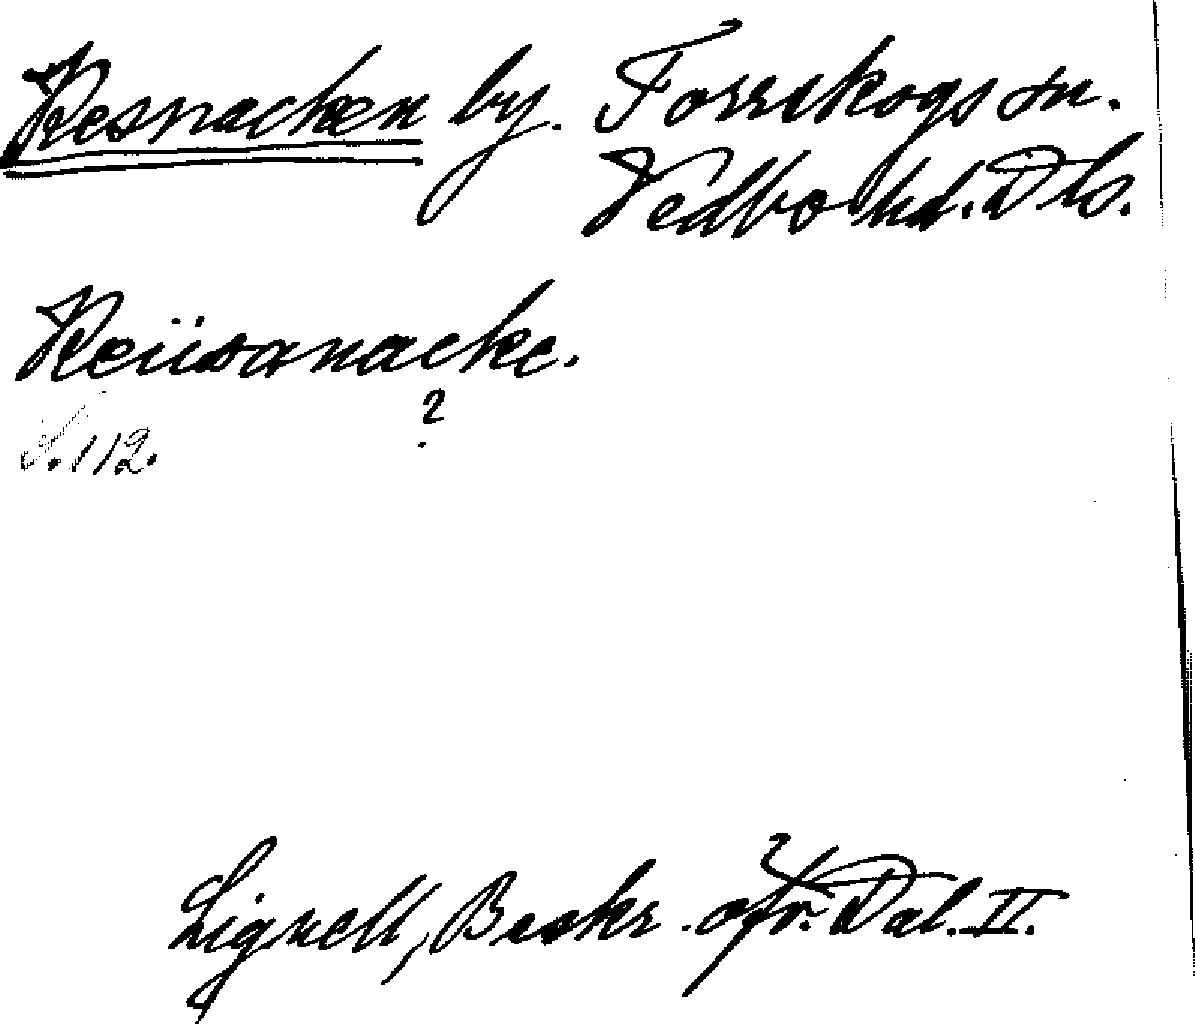 Resnacken by. Torrskogs sn.
Vedbo hd. Dls.
Reiisanacke.
?
S. 112.
Lignell, Beskr. öfv. Dal. II.